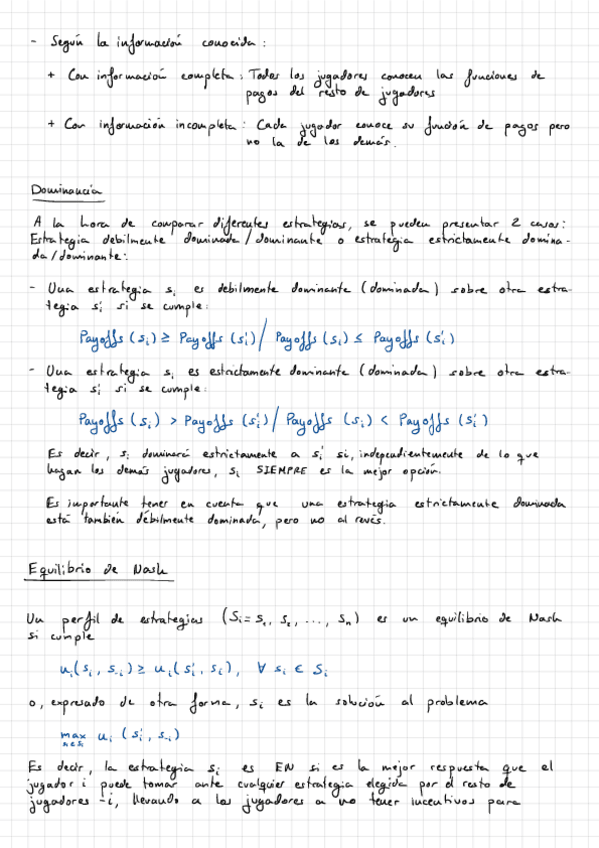 - Según la información conocida :
+ Con información completa : Todos los jugadores conocen las funciones de
pagos del resto de jugadores
+ Con información incompleta : Cada jugador conoce su función de pagos pero
no la de los demás.
Dominancia
A la hora de comparar diferentes estrategias, se pueden presentar 2 casos:
Estrategia debilmente dominada/dominante o estrategia estrictamente domina-
da/dominante:
- Una estrategia si es debilmente dominante (dominada) sobre otra estra-
tegia si' si se cumple:
Payoffs (si) ≥ Payoffs (si') / Payoffs (si) ≤ Payoffs (si')
- Una estrategia si es estrictamente dominante (dominada) sobre otra estra-
tegia si' si se cumple:
Payoffs (si) > Payoffs (si') / Payoffs (si) < Payoffs (si')
Es decir, si dominará estrictamente a si' si, independientemente de lo que
hagan los demás jugadores, si SIEMPRE es la mejor opción.
Es importante tener en cuenta que una estrategia estrictamente dominada
está también débilmente dominada, pero no al revés.
Equilibrio de Nash
Un perfil de estrategias (Si = s1, s2, ..., sn) es un equilibrio de Nash
si cumple
ui(si, s-i) ≥ ui(si', si), ∀ si ∈ Si
o, expresado de otra forma, si es la solución al problema
max ui (si', s-i)
Es decir, la estrategia si es EN si es la mejor respuesta que el
jugador i puede tomar ante cualquier estrategia elegida por el resto de
jugadores -i, llevando a los jugadores a no tener incentivos para